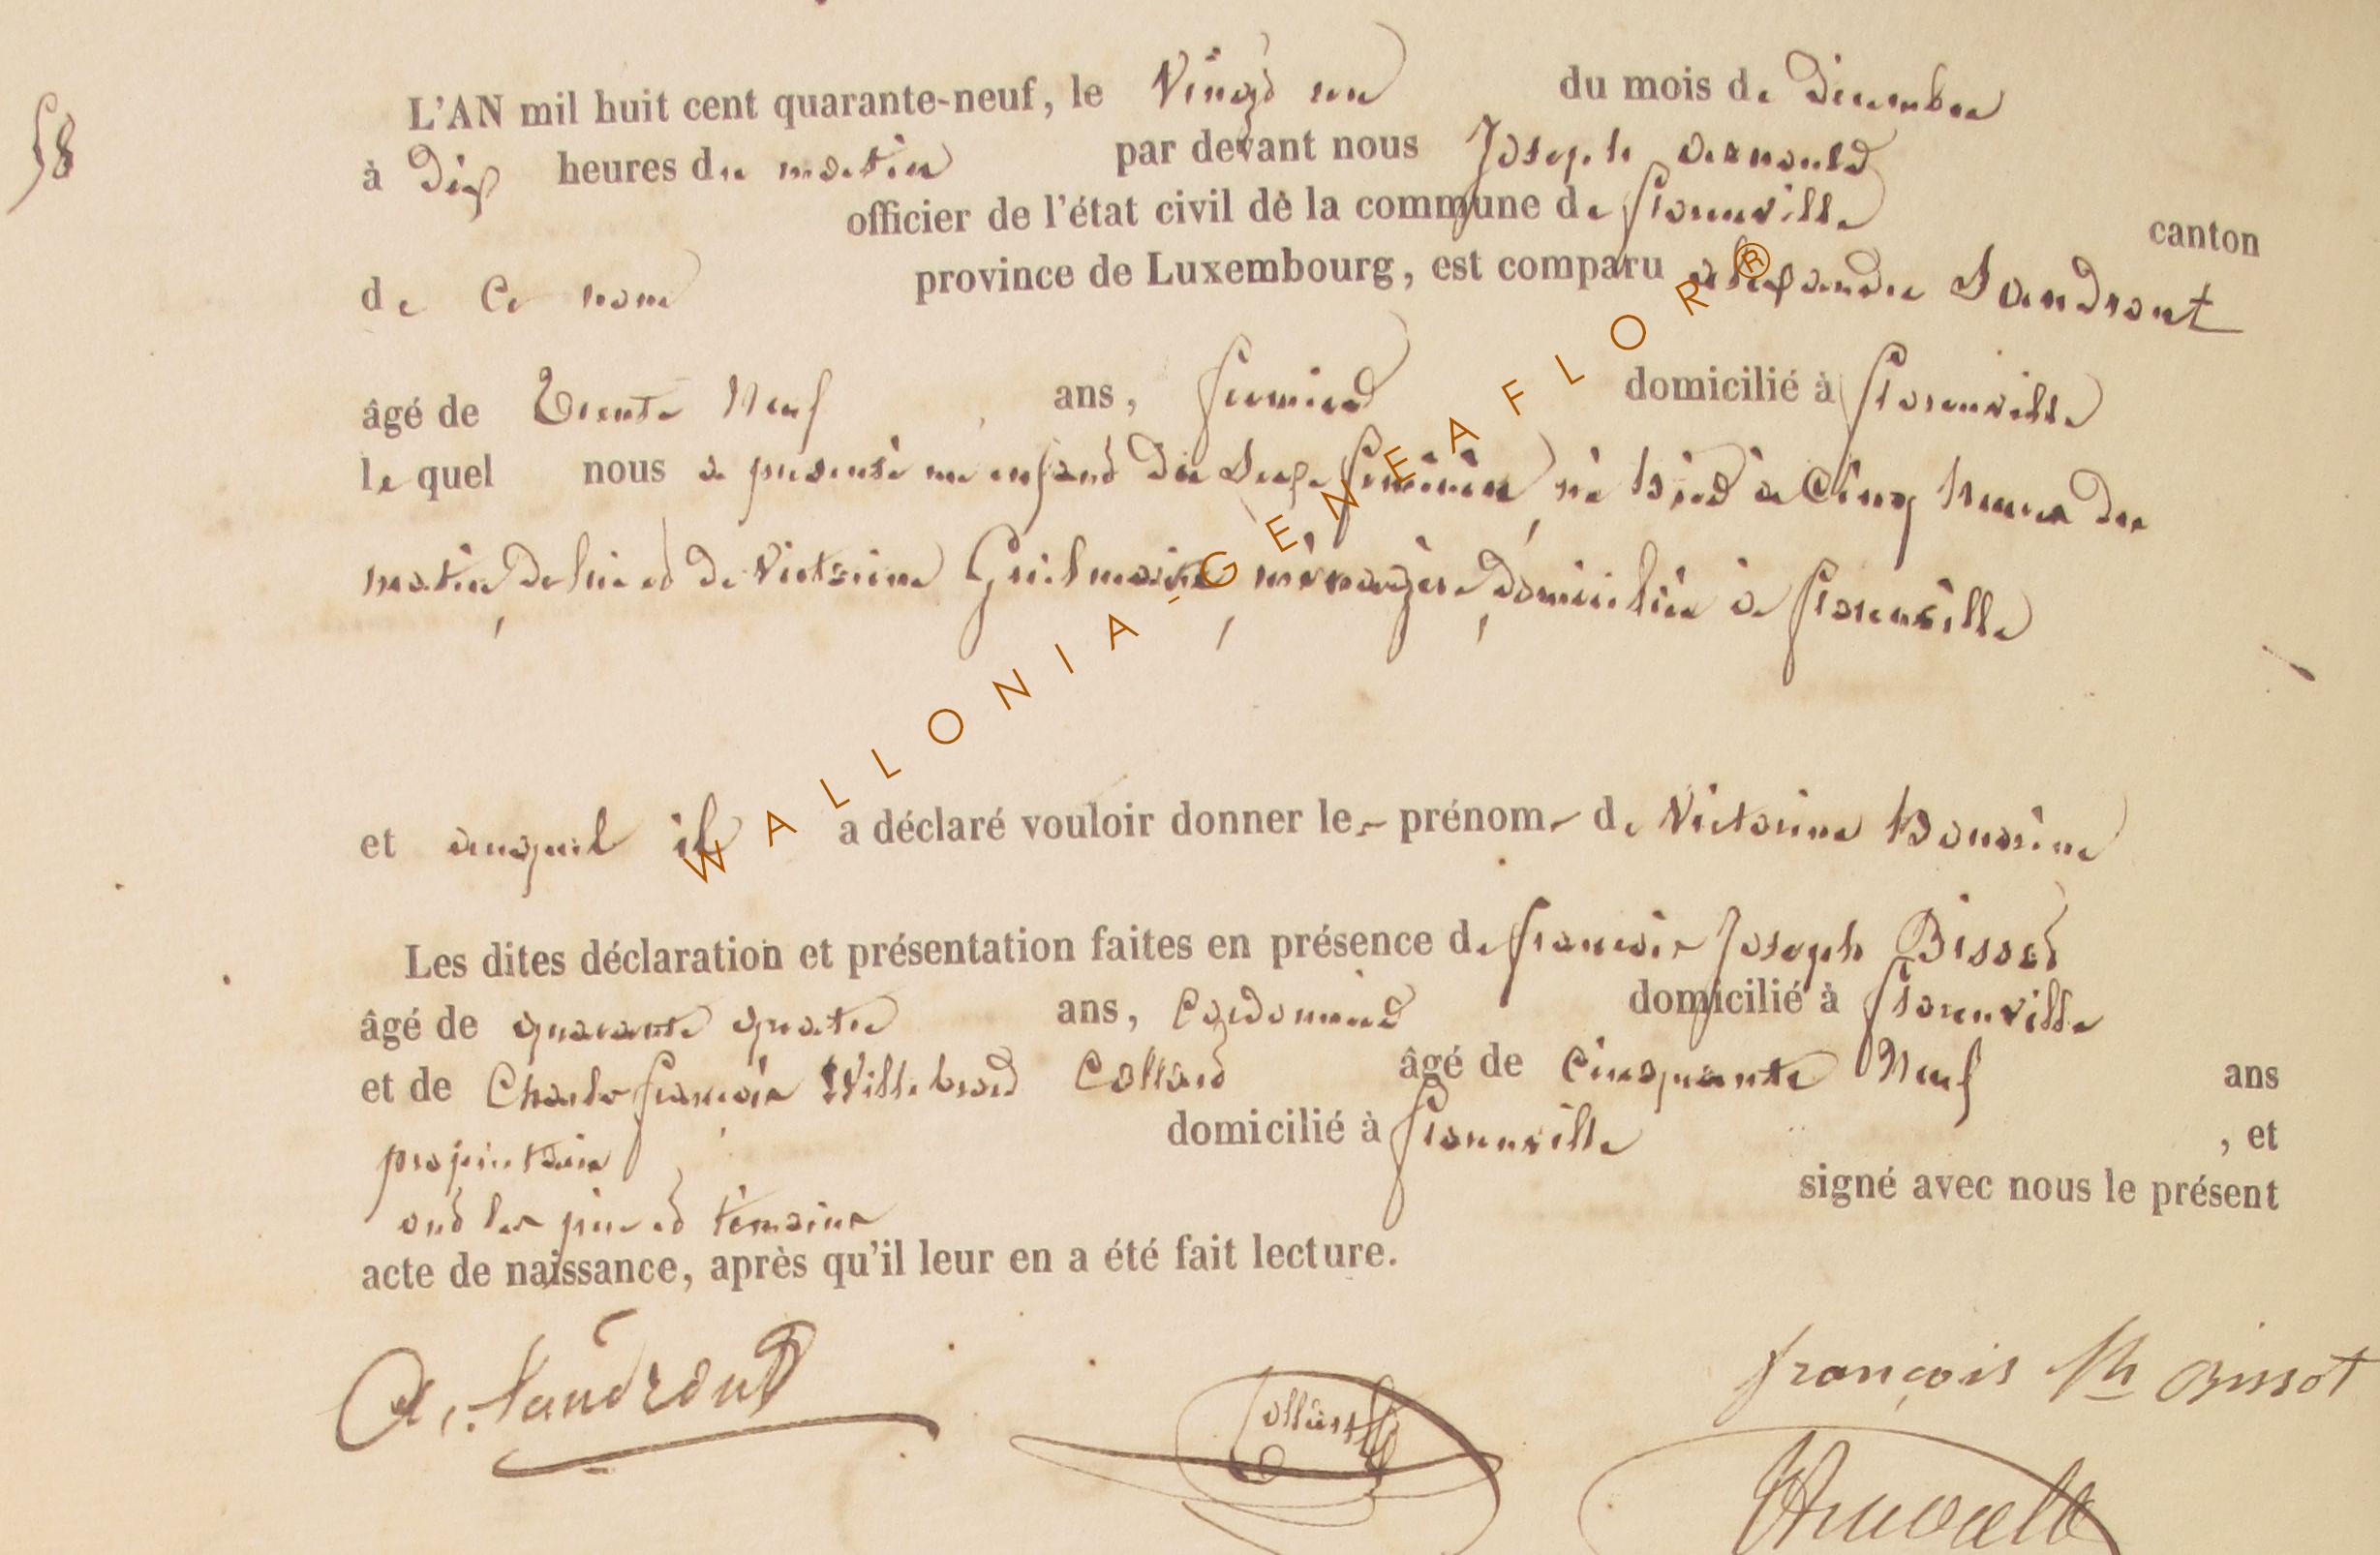 58
L'AN mil huit cent quarante-neuf, le Vingt un du mois de Decembre
à Dix heures du matin par devant nous Joseph arnould
officier de l'état civil de la commune de florenville canton
de Ce nom province de Luxembourg, est comparu alexandre Sandront
âgé de Trente Neuf ans, domicilié à florenville
le quel nous a presenté un enfant du Sexe feminin, né hier à Cinq heures du
matin, de lui et de Victorine Guilmaire, ménagère, domiciliée à florenville
et auquel il a déclaré vouloir donner les prénoms de Victorine Honorine
Les dites déclaration et présentation faites en présence de francois Joseph Bissot
âgé de quarante quatre ans, Cordonnier domicilié à florenville
et de Charles francois Willebrord Collard âgé de Cinquante Neuf ans
propriétaire domicilié à florenville , et
ont les pere et témoins signé avec nous le présent
acte de naissance, après qu'il leur en a été fait lecture.
A. Sandront Collard françois Jh Bissot
WALLONIA-GENEAFLOR®